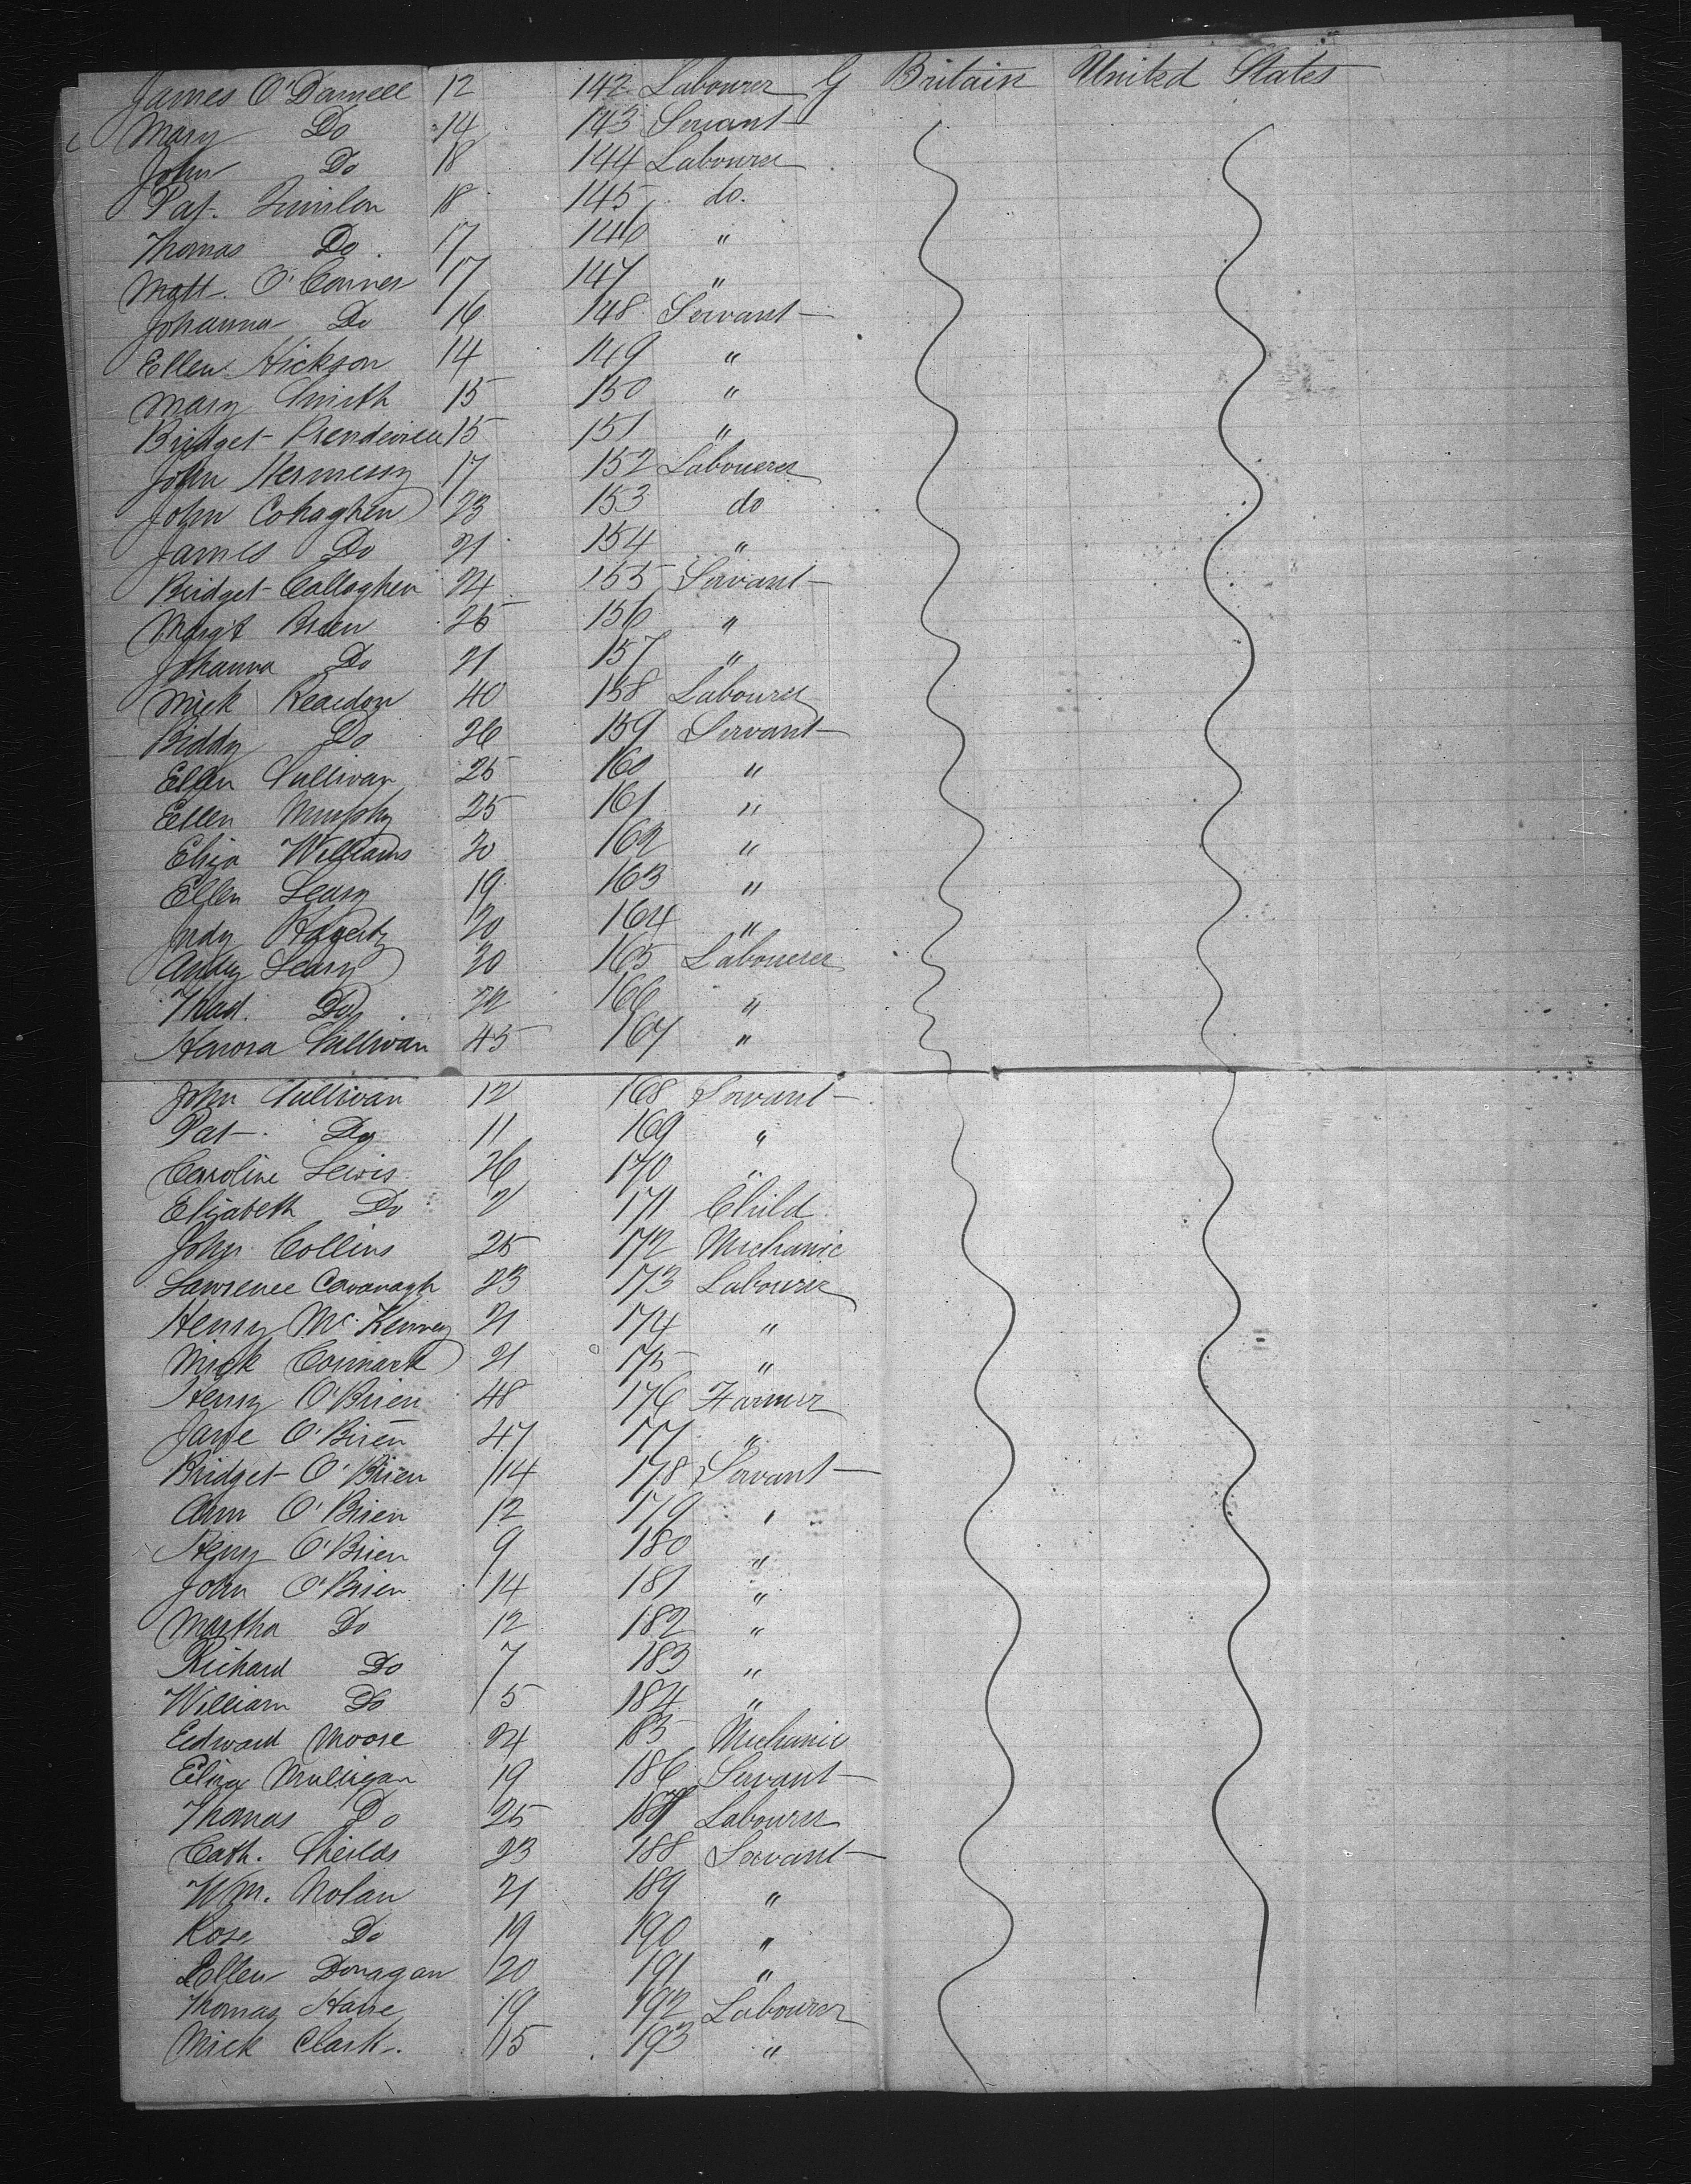 James O'Darnell 12 142 Labourer G Britain United States
Mary Do 14 143 Servant
John Do 18 144 Labourer
Pat. 18 145 do.
Thomas Do 17 146 "
Matt. O'Conner 17 147 "
Johanna Do 16 148 Servant
Ellen Hickson 14 149 "
Mary Smith 15 150 "
Bridget 15 151 "
John Hennessy 17 152 Labourer
John Cohaghen 23 153 do
James Do 21 154 "
Bridget Callaghen 24 155 Servant
Margt Breen 25 156 "
Johanna Do 21 157 "
Mick Reardon 40 158 Labourer
Biddy Do 26 159 Servant
Ellen Sullivan 25 160 "
Ellen Murphy 25 161 "
Eliza Williams 20 162 "
Ellen Leary 19 163 "
Judy Hagerty 20 164 "
Andy Leary 20 165 Labourer
Thad. Do 22 166 "
Henora Sullivan 45 167 "
John Sullivan 12 168 Servant
Pat. Do 11 169 "
Caroline Lewis 26 170 "
Elizabeth Do 2 171 Child
John Collins 25 172 Mechanic
Lawrence Cavanagh 23 173 Labourer
Henry McKenney 21 174 "
Mick Cormack 21 175 "
Henry O'Brien 48 176 Farmer
Jane O'Brien 47 177 "
Bridget O'Brien 14 178 Servant
Ann O'Brien 12 179 "
Henry O'Brien 9 180 "
John O'Brien 14 181 "
Martha Do 12 182 "
Richard Do 7 183 "
William Do 5 184 "
Edward Moore 24 185 Mechanic
Eliza Mulligan 19 186 Servant
Thomas Do 25 187 Labourer
Cath. Sheilds 23 188 Servant
Wm. Nolan 21 189 "
Rose Do 19 190 "
Ellen Donagan 20 191 "
Thomas Hane 19 192 Labourer
Mick Clark. 15 193 "